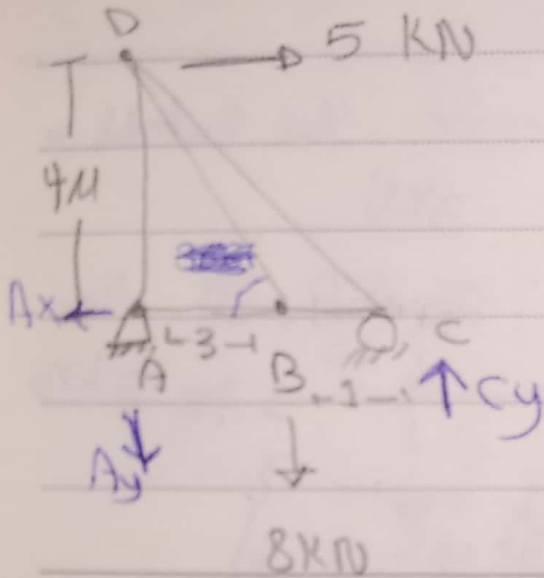 D
5 KN
4M
Ax
3
C
A
B
1
Cy
Ay
8KN